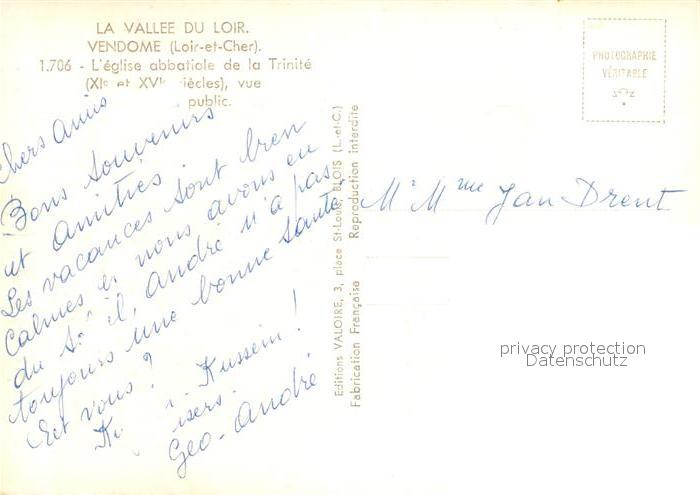 LA VALLEE DU LOIR.
VENDOME (Loir-et-Cher).
1.706 - L'église abbatiale de la Trinité
(XIe et XVe siècles), vue
public.
Chers amis
Bons souvenirs
et amitiés.
Les vacances sont bien
calmes et nous avons eu
du soleil, André n'a pas
toujours une bonne santé,
Et vous?
Kussem!
Geo-André
Editions VALOIRE, 3, place St-Louis, BLOIS (L.-et-C.)
Fabrication Française Reproduction interdite
PHOTOGRAPHIE
VÉRITABLE
Mr Mme Jan Drent
privacy protection
Datenschutz